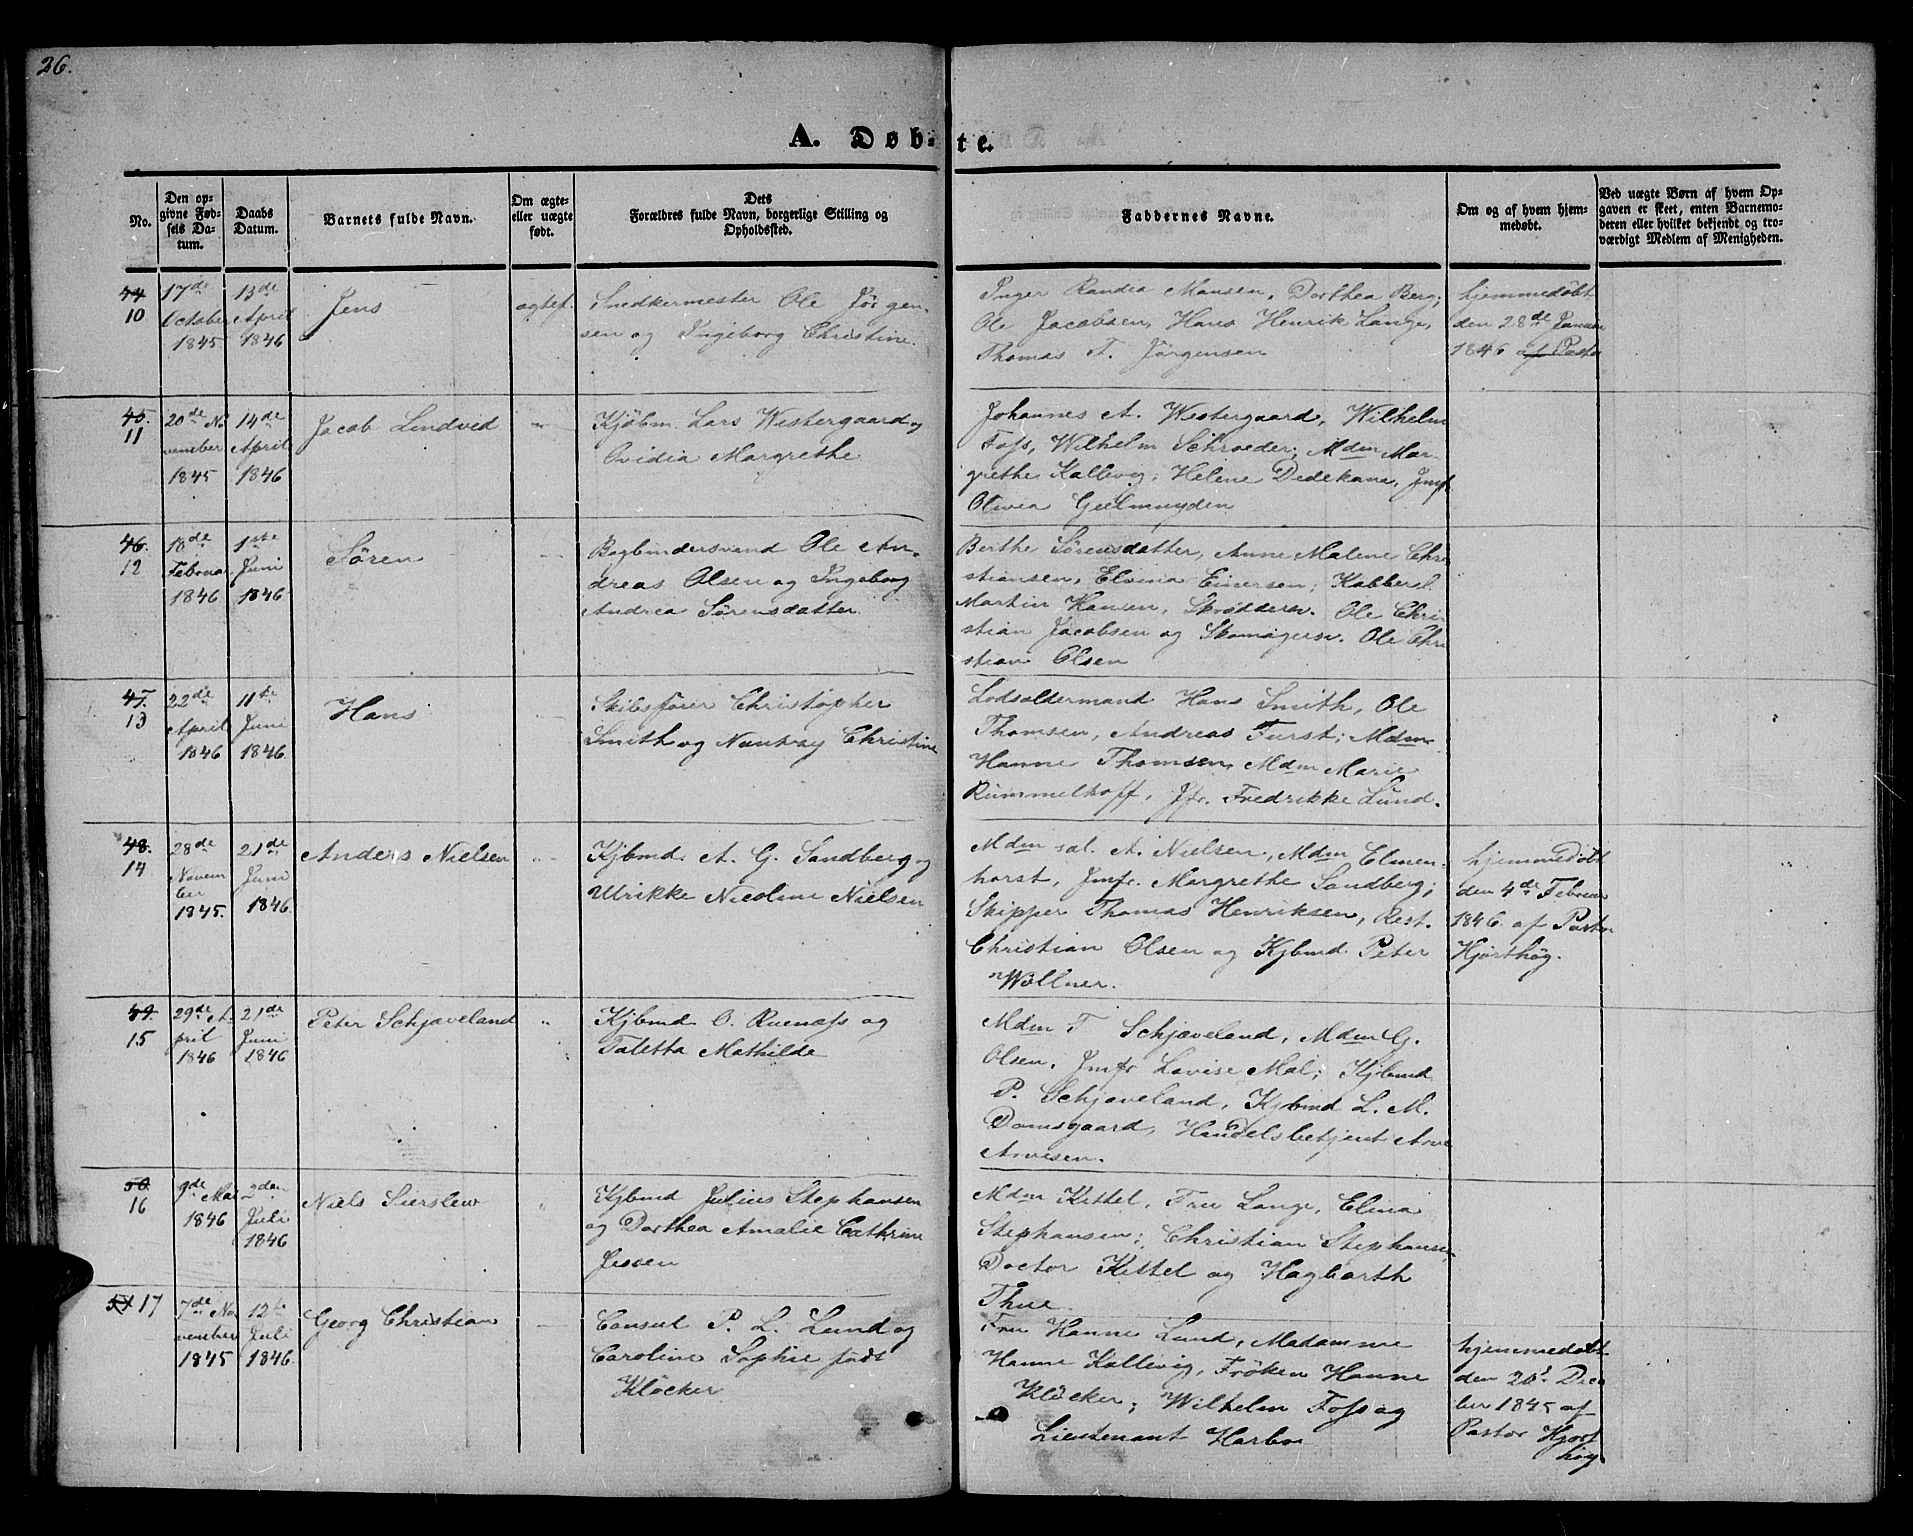 26.
A. Døb-
te.
No.
Den op-
givne Fød-
sels Da-
tum.
Daabs
Datum.
Barnets fulde Navn.
Om ægte-
eller uægte
født.
Dets
Forældres fulde Navn, borgerlige Stilling og
Opholdssted.
Faddernes Navne.
Om og af hvem hjem-
medøbt.
Ved uægte Børn af hvem Op-
gaven er skeet, enten Barnemo-
deren eller hvilket bekjendt og tro-
værdigt Medlem af Menigheden.
44
10
17de
October
1845
13de
April
1846
Jens
ægtef.
Snedkermester Ole Jörgen-
sen og Ingeborg Christine.
Inger Randia Mansen, Dorthea Berg;
Ole Jacobsen, Hans Henrik Lange,
Thomas T. Jörgensen
hjemmedöbt
den 28de Janua
1846 af Pasto
45.
11
20de No
vember
1845
14de
April
1846
Jacob Lindved
Kjöbm. Lars Westergaard og
Ovidia Margrethe
Johannes A. Westergaard, Wilhelm
Foss, Wilhelm Schroeder; Mdm Mar-
grethe Kallevig; Helene Dedekam, Jmf.
Olivia Geelmuyden
46.
12
18de
Februar
1846
1ste
Juni
1846
Sören
Bogbindersvend Ole An-
dreas Olsen og Ingeborg
Andrea Sörensdatter.
Berthe Sörensdatter, Anne Malene Chri
stiansen, Elvina Einersen; Kobbersl.
Martin Hansen, Skrædderm. Ole Chri-
stian Jacobsen og Skomagersv. Ole Chri
stian Olsen
47.
13
22de
April
1846
11te
Juni
1846
Hans
Skibsförer Christopher
Smith og Christine
Lodsoldermand Hans Smith, Ole
Thomsen, Andreas Furst; Mdm
Hanne Thomsen, Mdm Marie
Rummelhoff, Jfr. Fredrikke Lund.
48.
14
28de
Novem
ber
1845.
21de
Juni
1846.
Anders Nielsen
Kjbmd. A. G. Sandberg og
Ulrikke Nicoline Nielsen
Mdm sal. A. Nielsen, Mdm Elmen-
horst, Jmfr. Margrethe Sandberg;
Skipper Thomas Henriksen, Rest.
Christian Olsen og Kjbmd Peter
Wöllner.
hjemmedöbt
den 4de Februa
1846. af Pastor
Hjorthög.
49.
15
29de A-
pril
1846
21de
Juni
1846
Peter Schjæveland
Kjbmd O. Ruenæss og
Taletta Mathilde
Mdm T Schjæveland, Mdm G.
Olsen, Jmfr Lovise Mal; Kjbmd
P. Schjæveland, Kjbmd L. M.
Damsgaard, Handelsbetjent Arve
Arvesen.
50.
16
9de Mai
1846
2den
Juli
1846
Niels Sierslew
Kjbmd Julius Stephansen
og Dorthea Amalie Cathrine
Jessen
Mdm Kittel, Fru Lange, Elina
Stephansen; Christian Stephansen,
Doctor Kittel og Hagbarth
Thue.
51 17
7de No
vember
1845
12te
Juli
1846.
Georg Christian
Consul P. L. Lund og
Caroline Sophie födt
Klöcker
Fru Hanne Lund, Madamme
Hanne Kallevig, Fröken Hanne
Klöcker; Wilhelm Foss og
Lieutenant Harboe
hjemmedöbt
den 20d Dece
ber 1845 af
Pastor Hjort
hög.